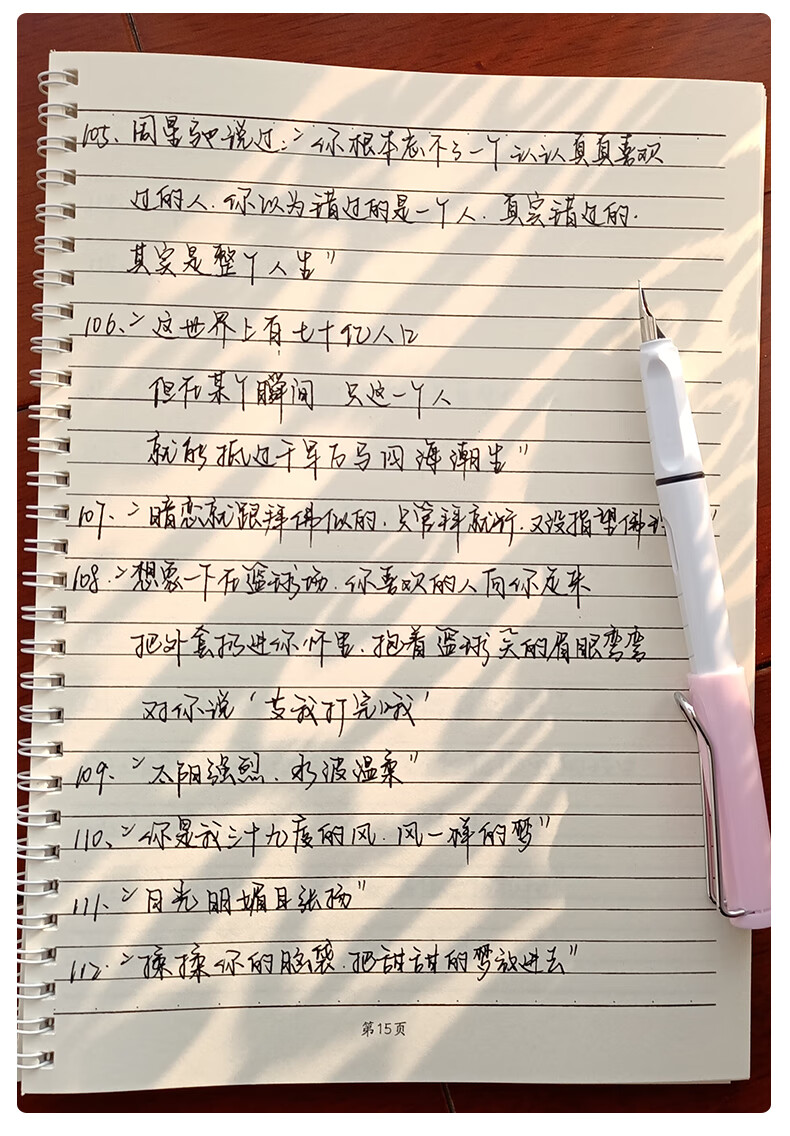 105、周星驰说过:"你根本忘不了一个认认真真喜欢
过的人.你以为错过的是一个人.真实错过的.
其实是整个人生"
106、"这世界上有七十亿人口
但在某个瞬间 只这一个人
就能抵过千军万马四海潮生"
107、"暗恋就跟拜佛似的.只管拜就行.又没指望佛"
108."想象一下在篮球场.你喜欢的人向你走来
把外套扔进你怀里.抱着篮球笑的眉眼弯弯
对你说'等我打完哦'
109、"太阳强烈.水波温柔"
110、"你是我三十九度的风.风一样的梦"
111、"月光明媚且张扬"
112."揉揉你的脑袋.把甜甜的梦放进去"
第15页